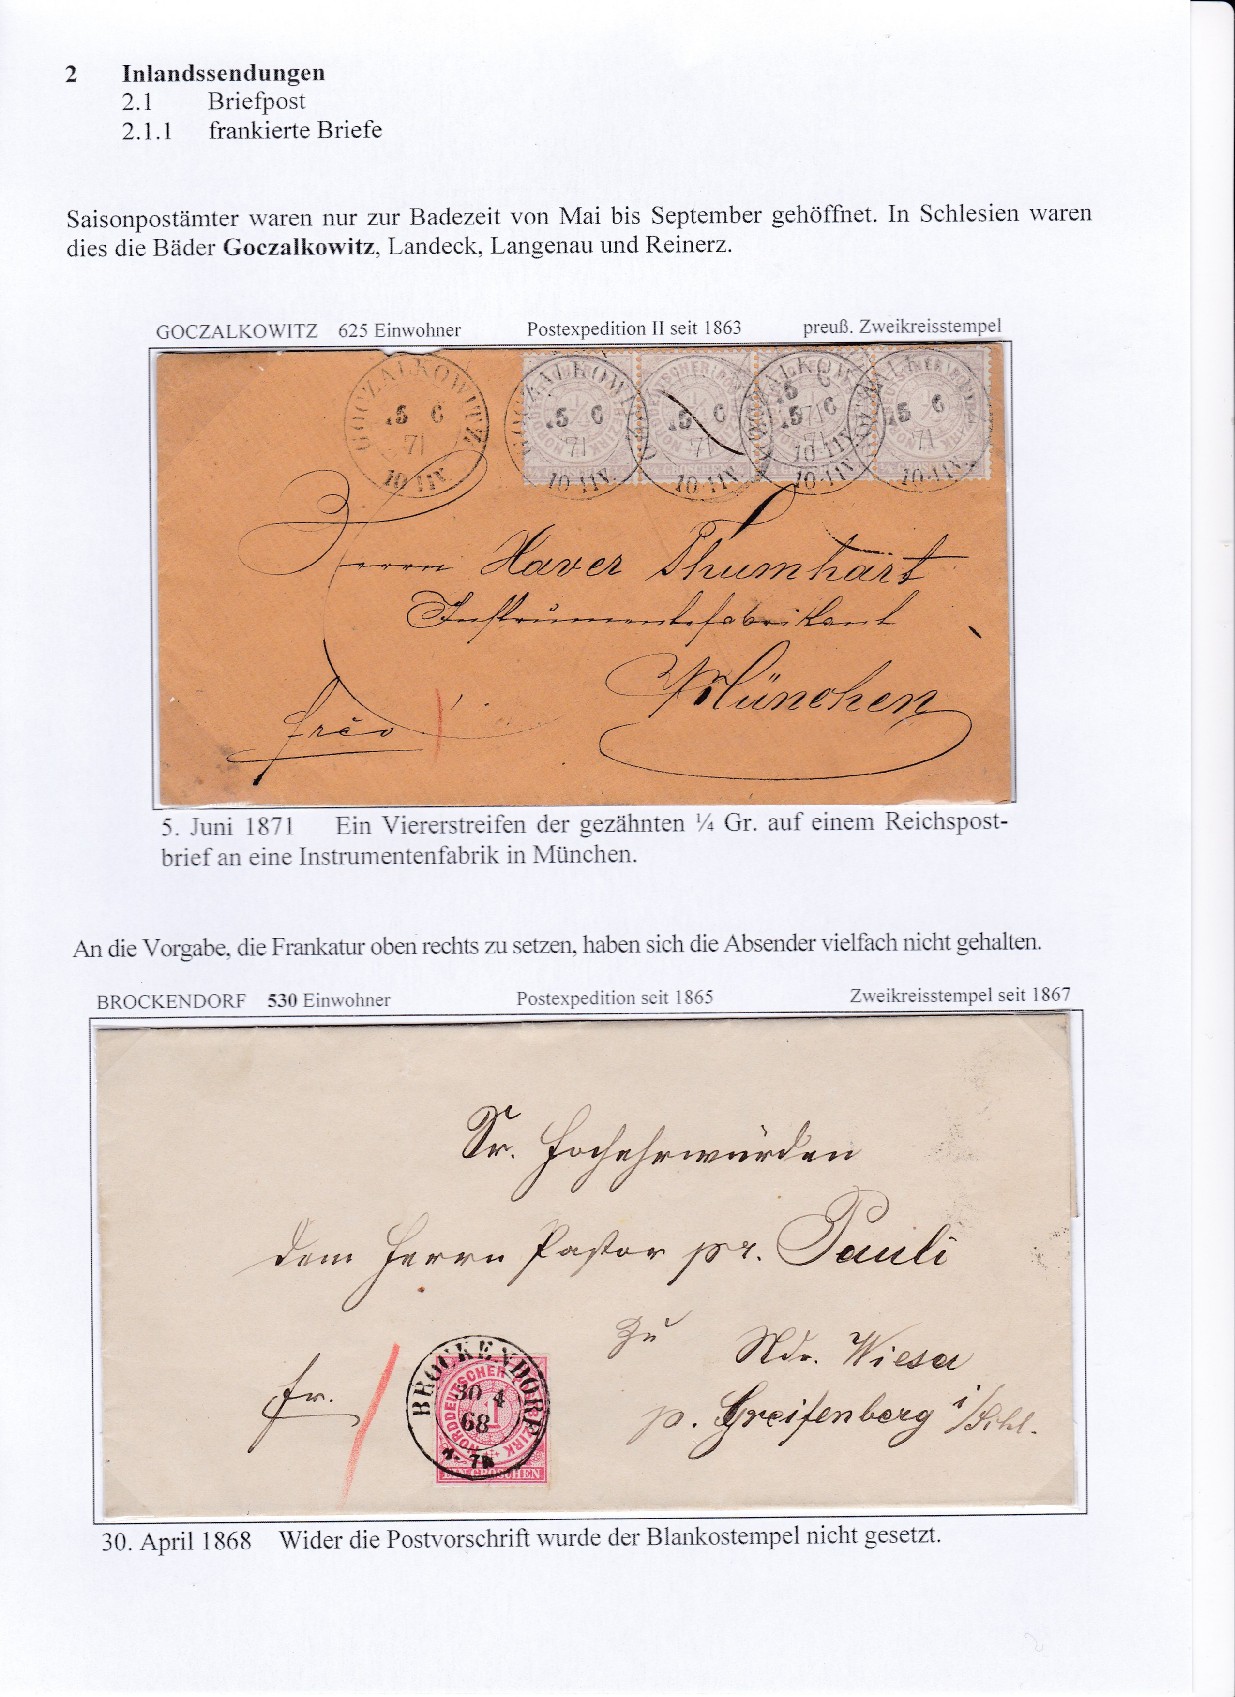 2 Inlandssendungen
2.1 Briefpost
2.1.1 frankierte Briefe
Saisonpostämter waren nur zur Badezeit von Mai bis September gehöffnet. In Schlesien waren
dies die Bäder Goczalkowitz, Landeck, Langenau und Reinerz.
GOCZALKOWITZ 625 Einwohner Postexpedition II seit 1863 preuß. Zweikreisstempel
GOCZALKOWITZ
5 6
71
Herrn Xaver Thumhart
Instrumentefabrikant
München
frco
5. Juni 1871 Ein Viererstreifen der gezähnten ¼ Gr. auf einem Reichspost-
brief an eine Instrumentenfabrik in München.
An die Vorgabe, die Frankatur oben rechts zu setzen, haben sich die Absender vielfach nicht gehalten.
BROCKENDORF 530 Einwohner Postexpedition seit 1865 Zweikreisstempel seit 1867
Sr. Hochehrwürden
dem Herrn Pastor pr. Pauli
zu Ndr. Wiesa
p. Greifenberg i/Schl.
fr.
BROCKENDORF
30 4
68
NORDDEUTSCHER
1
EIN GROSCHEN
30. April 1868 Wider die Postvorschrift wurde der Blankostempel nicht gesetzt.